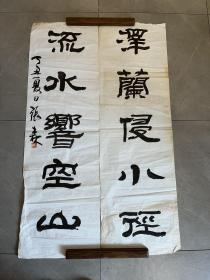 澤蘭侵小徑
流水響空山
丁丑夏日張森